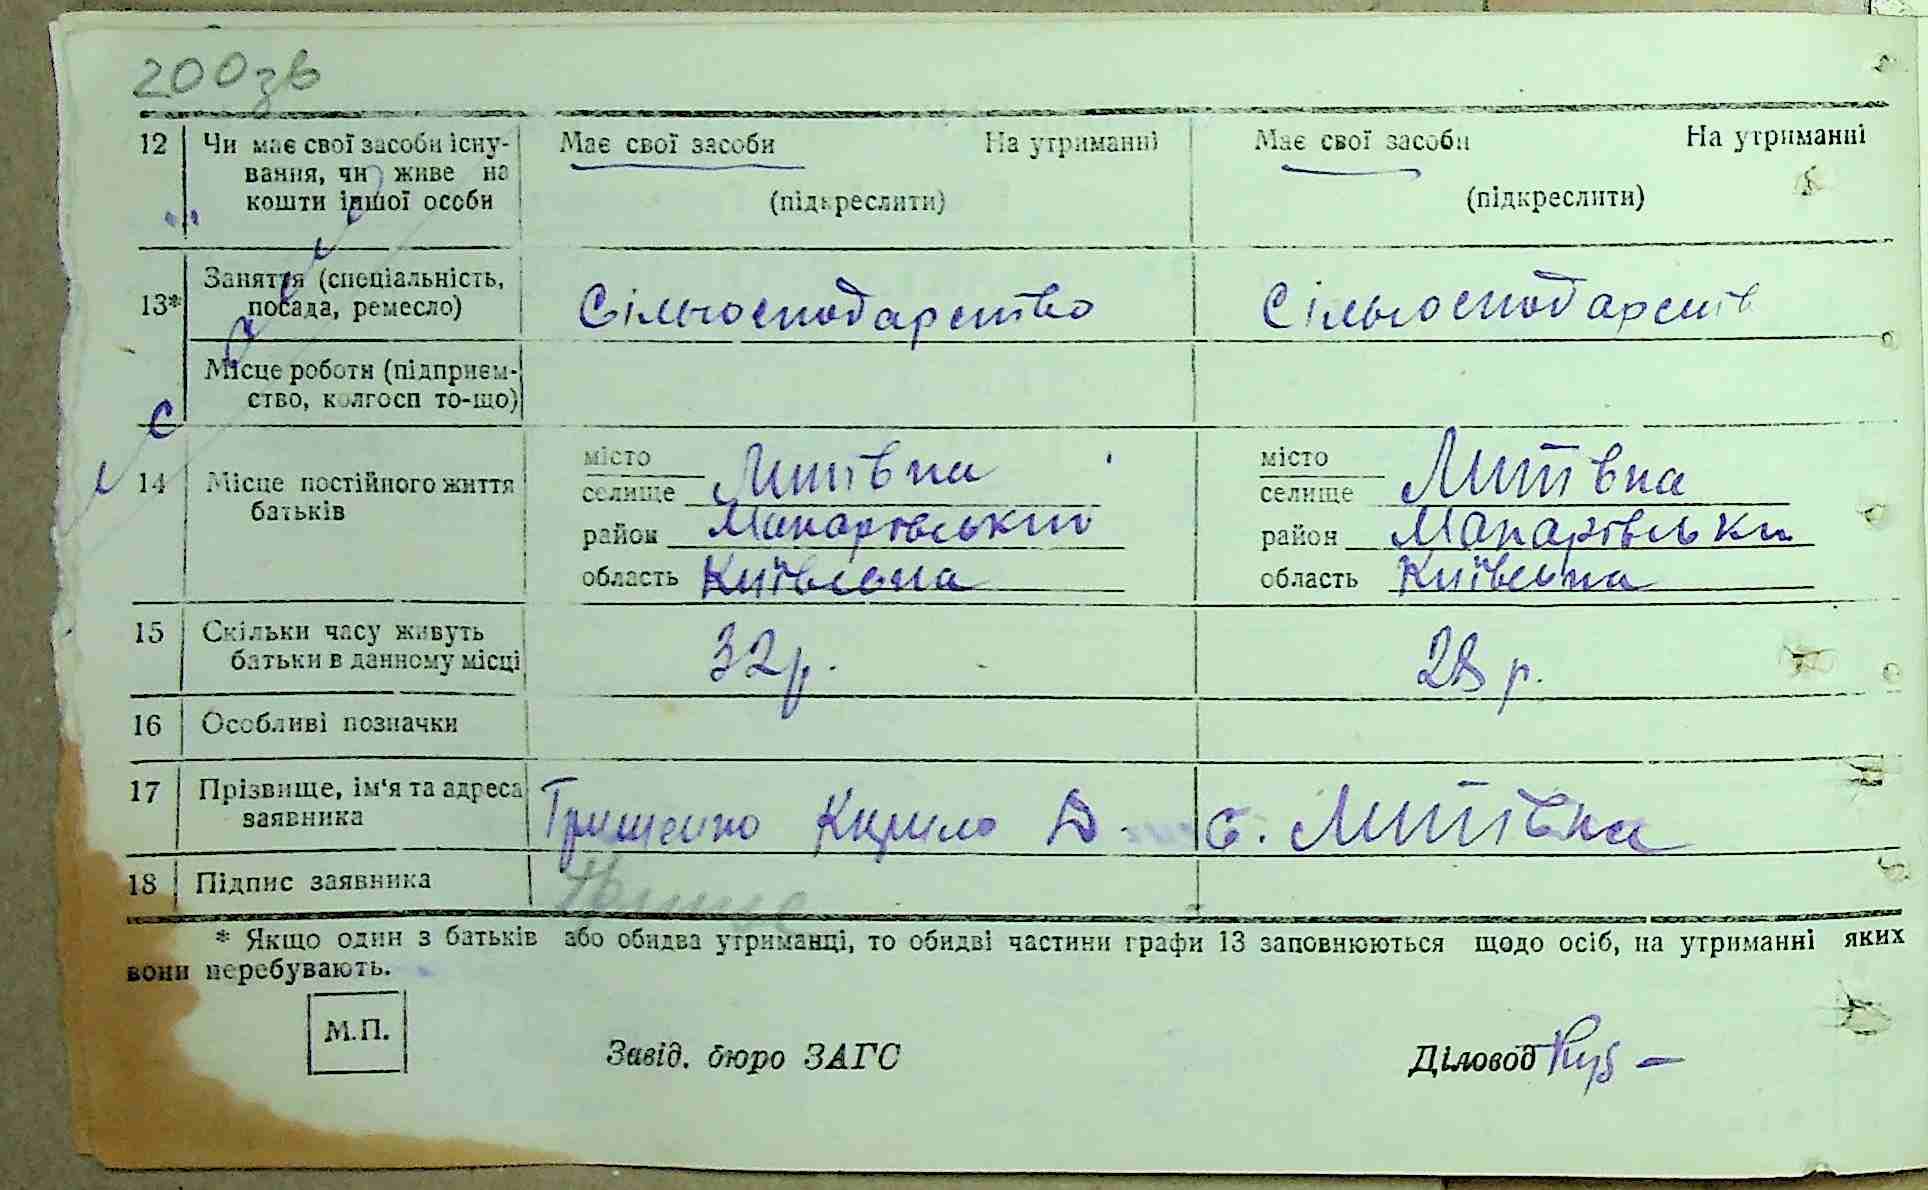 200зв
12 Чи має свої засоби існу- Має свої засоби На утриманні Має свої засоби На утриманні
вання, чи живе на
кошти іншої особи (підкреслити) (підкреслити)
13* Заняття (спеціальність,
посада, ремесло) Сільгосподарство Сільгосподарств
Місце роботи (підприєм-
ство, колгосп то-що)
14 Місце постійного життя
батьків
місто
селище Митівка місто
селище Митівка
район Макарівський район Макарівськи
область область
15 Скільки часу живуть
батьки в данному місці 32р. 28 р.
16 Особливі позначки
17 Прізвище, ім'я та адреса
заявника Грищенко Кирило Д. с. Митівка
18 Підпис заявника
* Якщо один з батьків або обидва утриманці, то обидві частини графи 13 заповнюються щодо осіб, на утриманні яких
вони перебувають.
М.П.
Завід. бюро ЗАГС Діловод